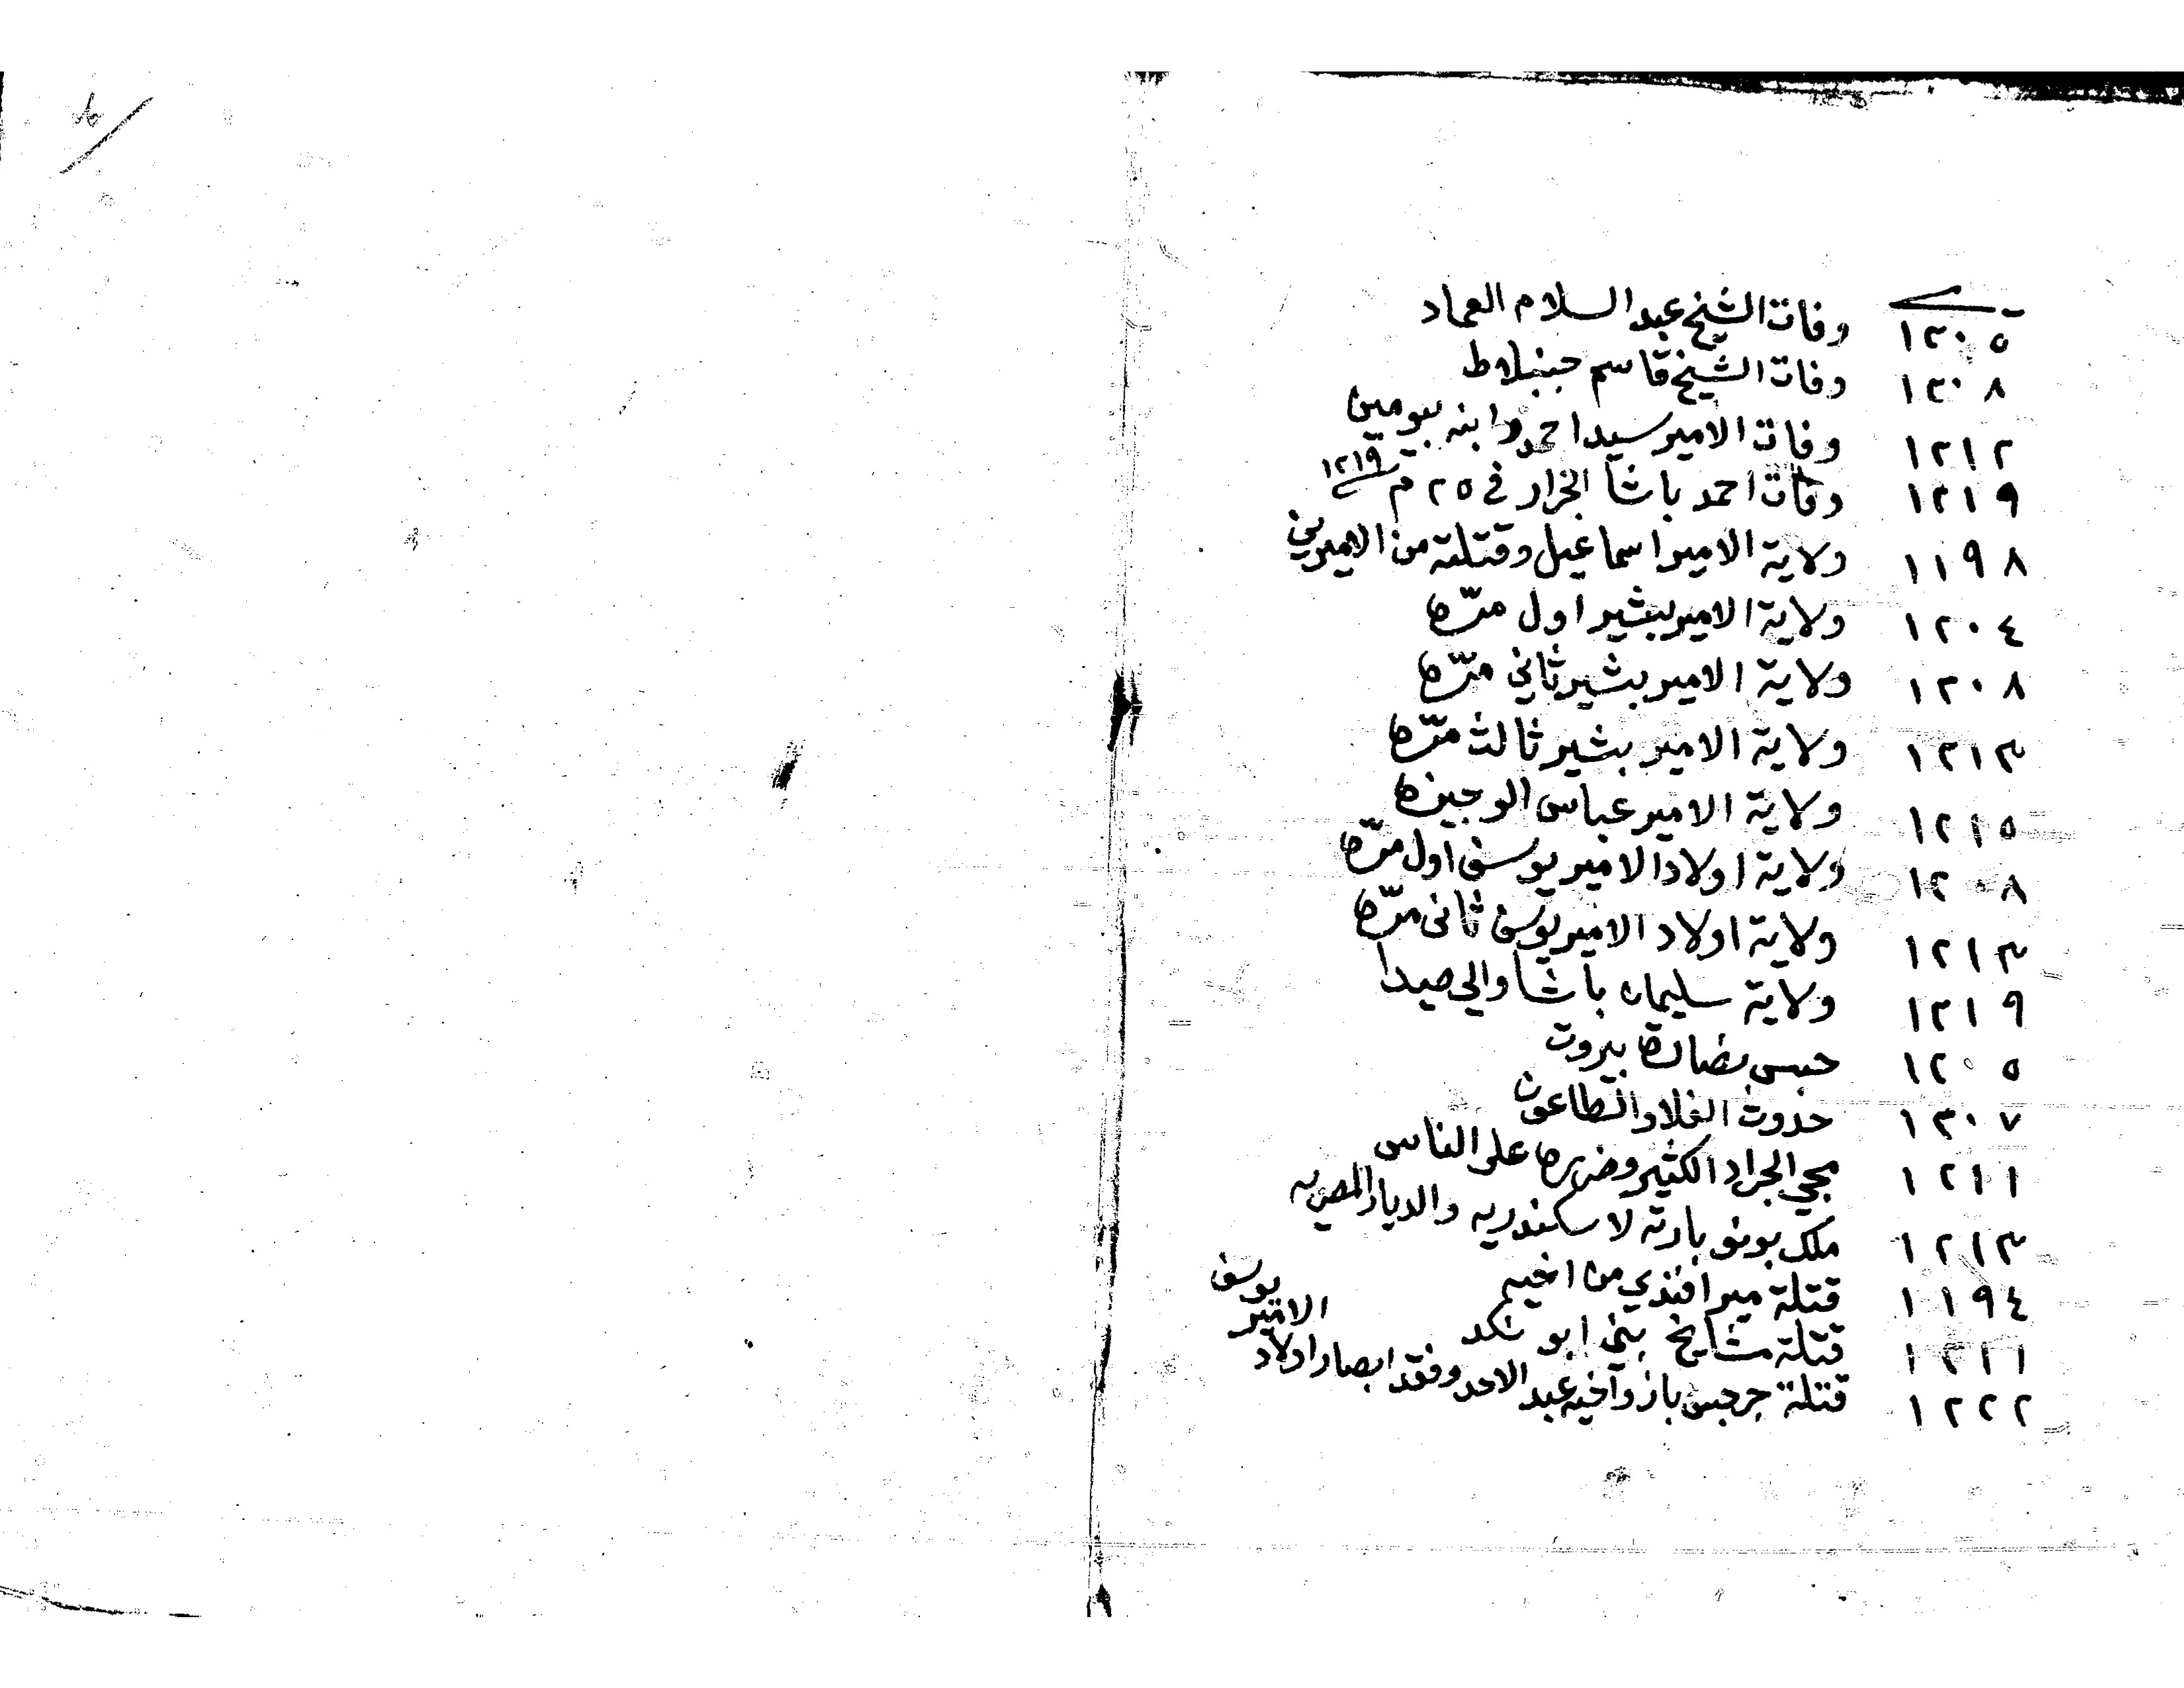 سنة
١٢٠٥ وفات الشيخ عبد السلام العماد
١٢٠٨ وفات الشيخ قاسم جنبلاط
١٢١٢ وفات الامير سيد احمد وابنه بيومين
١٢١٩ وفات احمد باشا الجزار في ٢٥ م سنة ١٢١٩
١١٩٨ ولاية الامير اسماعيل وقتلته من الاميرين
١٢٠٤ ولاية الامير بشير اول مرّه
١٢٠٨ ولاية الامير بشير ثاني مرّه
١٢١٣ ولاية الامير بشير ثالث مرّه
١٢١٥ ولاية الامير عباس الوجيزه
١٢٠٨ ولاية اولاد الامير يوسف اول مرّه
١٢١٣ ولاية اولاد الامير يوسف ثانى مرّه
١٢١٩ ولاية سليمان باشا والي صيدا
١٢٠٥ حبس نصاره بيروت
١٢٠٧ حدوث الغلا والطاعون
١٢١١ مجي الجراد الكثير وضرره على الناس
١٢١٣ ملك بونو بارته لاسكندريه والديار المصريه
١١٩٤ قتلة مير افندي من اخيه
١٢١١ قتلة مشايخ بني ابو نكد
١٢٢٢ قتلة جرجس باز واخيه عبد الاحد وفقد ابصار اولاد
الامير
يوسف